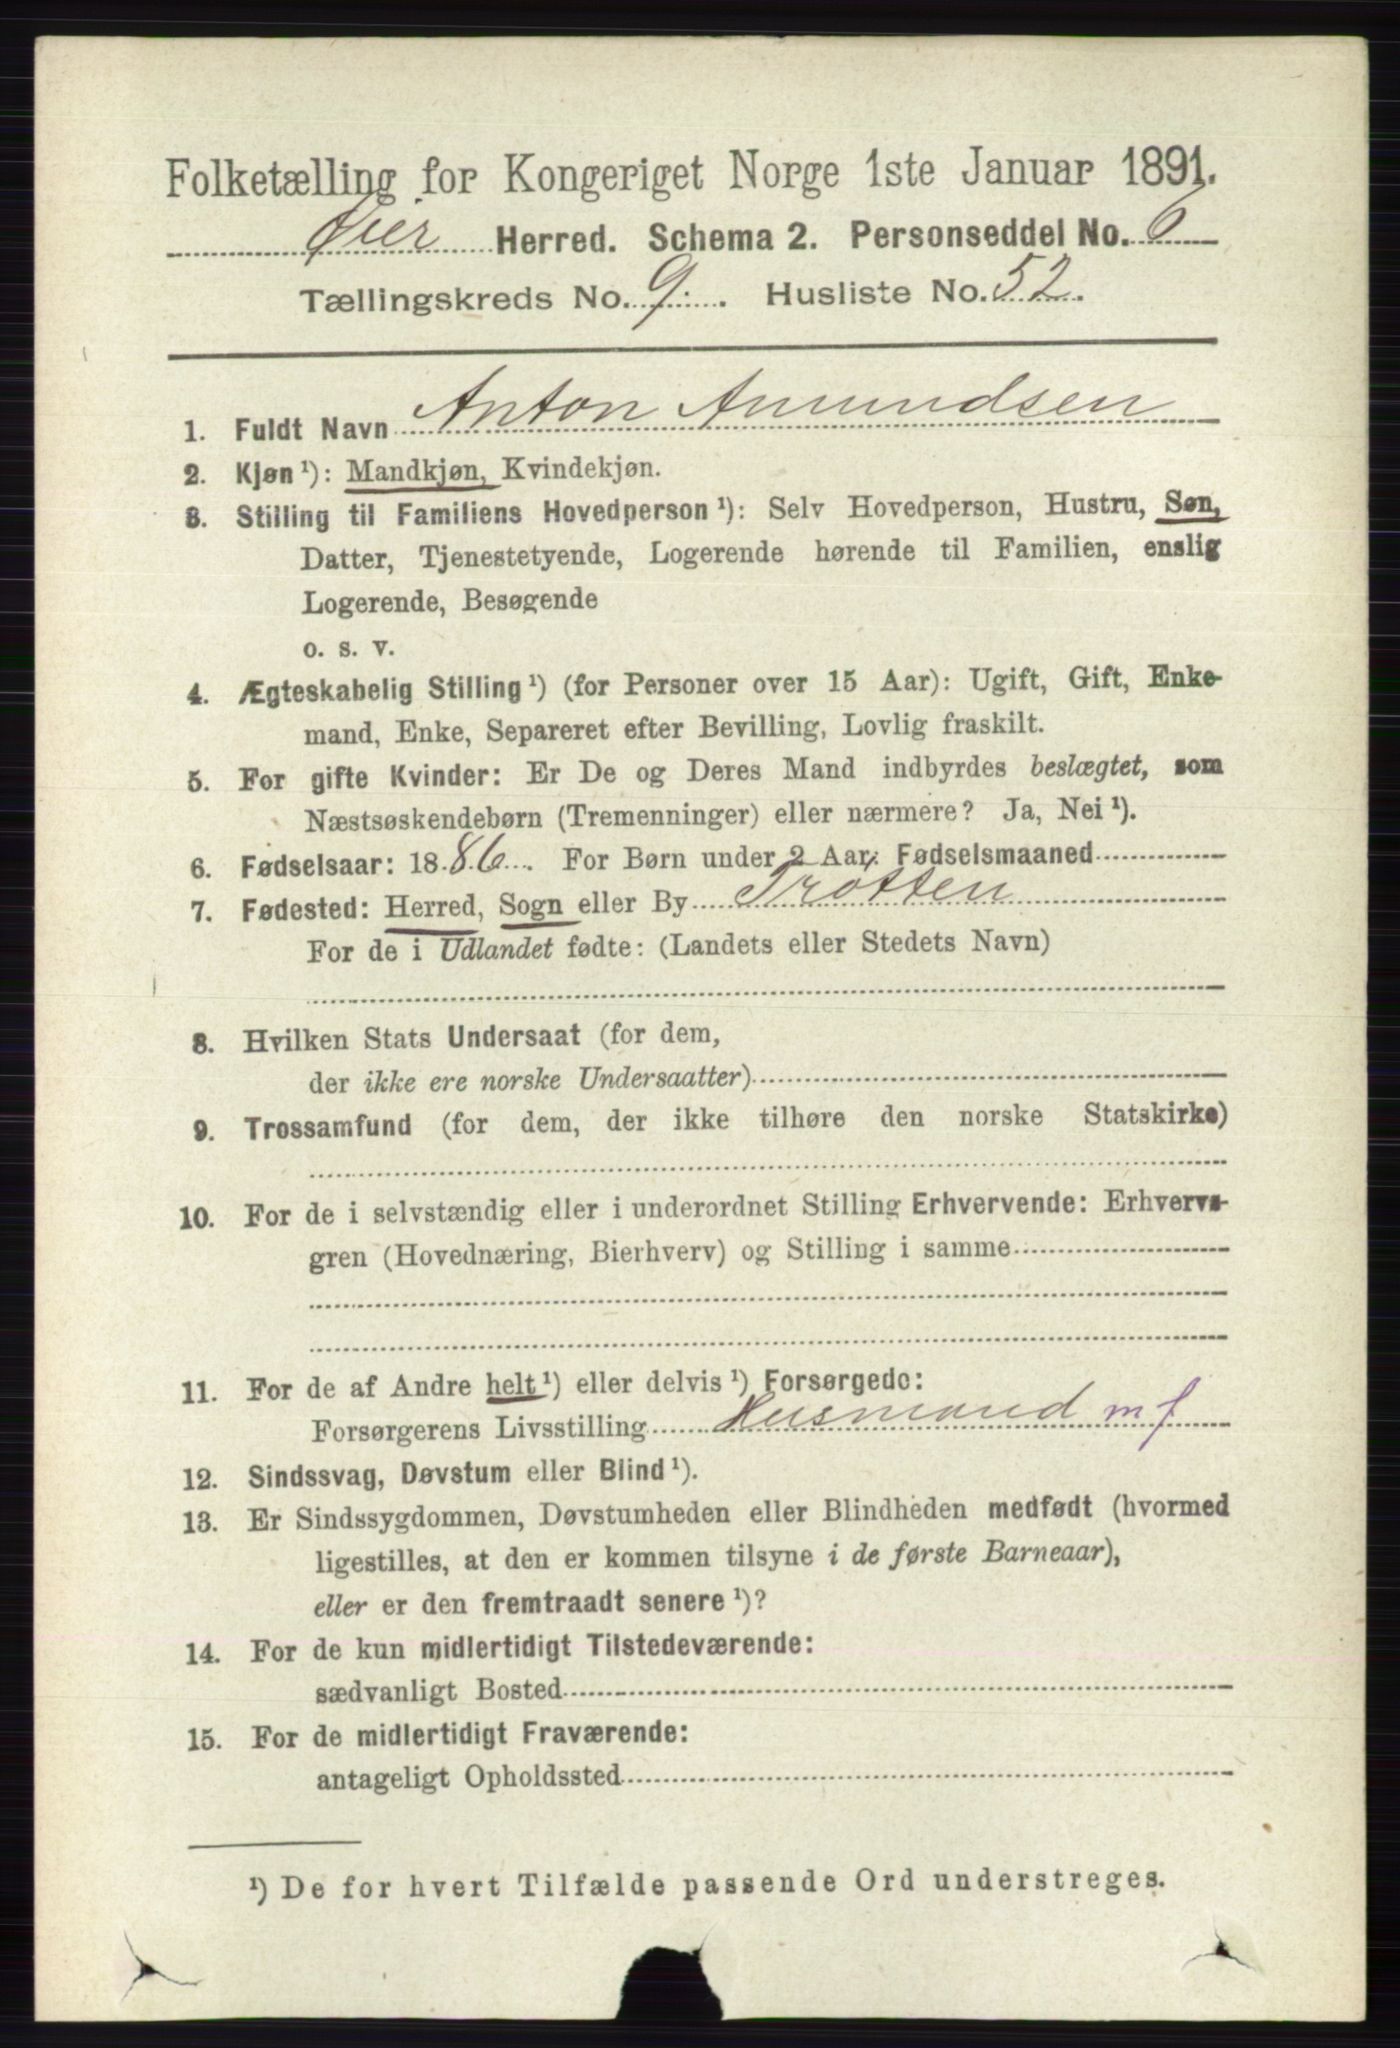 Folketælling for Kongeriget Norge 1ste Januar 1891.
Øier Herred. Schema 2. Personseddel No. 6
Tællingskreds No. 9. Husliste No. 52.
1. Fuldt Navn Anton Amundsen
2. Kjøn ¹): Mandkjøn, Kvindekjøn.
3. Stilling til Familiens Hovedperson ¹): Selv Hovedperson, Hustru, Søn,
Datter, Tjenestetyende, Logerende hørende til Familien, enslig
Logerende, Besøgende
o. s. v.
4. Ægteskabelig Stilling ¹) (for Personer over 15 Aar): Ugift, Gift, Enke-
mand, Enke, Separeret efter Bevilling, Lovlig fraskilt.
5. For gifte Kvinder: Er De og Deres Mand indbyrdes beslægtet, som
Næstsøskendebørn (Tremenninger) eller nærmere? Ja, Nei ¹).
6. Fødselsaar: 1886. For Børn under 2 Aar: Fødselsmaaned
7. Fødested: Herred, Sogn eller By Trotten
For de i Udlandet fødte: (Landets eller Stedets Navn)
8. Hvilken Stats Undersaat (for dem,
der ikke ere norske Undersaatter)
9. Trossamfund (for dem, der ikke tilhøre den norske Statskirke)
10. For de i selvstændig eller i underordnet Stilling Erhvervende: Erhvervs-
gren (Hovednæring, Bierhverv) og Stilling i samme
11. For de af Andre helt ¹) eller delvis ¹) Forsørgede:
Forsørgerens Livsstilling Husmand m f
12. Sindssvag, Døvstum eller Blind ¹).
13. Er Sindssygdommen, Døvstumheden eller Blindheden medfødt (hvormed
ligestilles, at den er kommen tilsyne i de første Barneaar),
eller er den fremtraadt senere ¹)?
14. For de kun midlertidigt Tilstedeværende:
sædvanligt Bosted
15. For de midlertidigt Fraværende:
antageligt Opholdssted
¹) De for hvert Tilfælde passende Ord understreges.